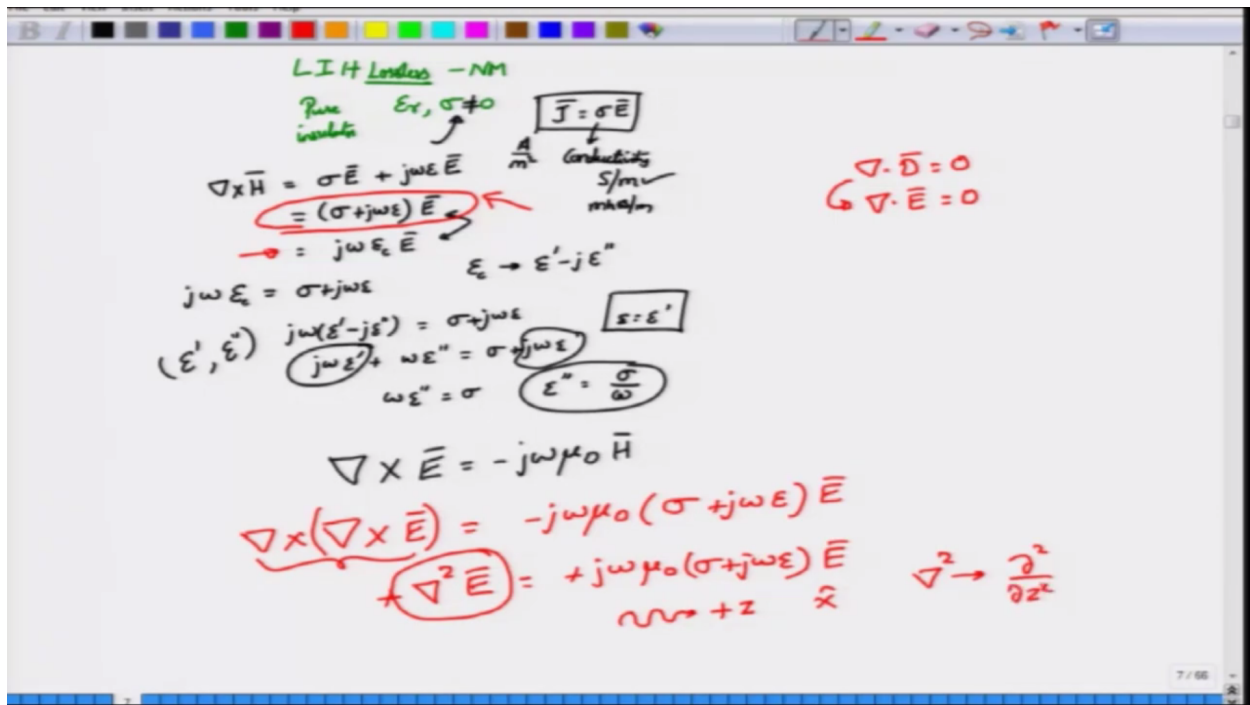 LIH Lossless - NM
Pure insulator εr, σ≠0
J̅ = σE̅
A/m² Conductivity
S/m ✓
mho/m
∇×H̅ = σE̅ + jωε E̅
= (σ+jωε) E̅
= jω εc E̅
εc → ε'-jε"
jω εc = σ+jωε
(ε', ε") jω(ε'-jε") = σ+jωε
ε=ε'
jωε' + ωε" = σ+jωε
ωε" = σ
ε" = σ/ω
∇·D̅ = 0
∇·E̅ = 0
∇ × E̅ = -jωμ₀ H̅
∇×(∇×E̅) = -jωμ₀(σ+jωε) E̅
+∇²E̅ = +jωμ₀(σ+jωε) E̅
∇² → ∂²/∂z²
+z x̂
7 / 66
7